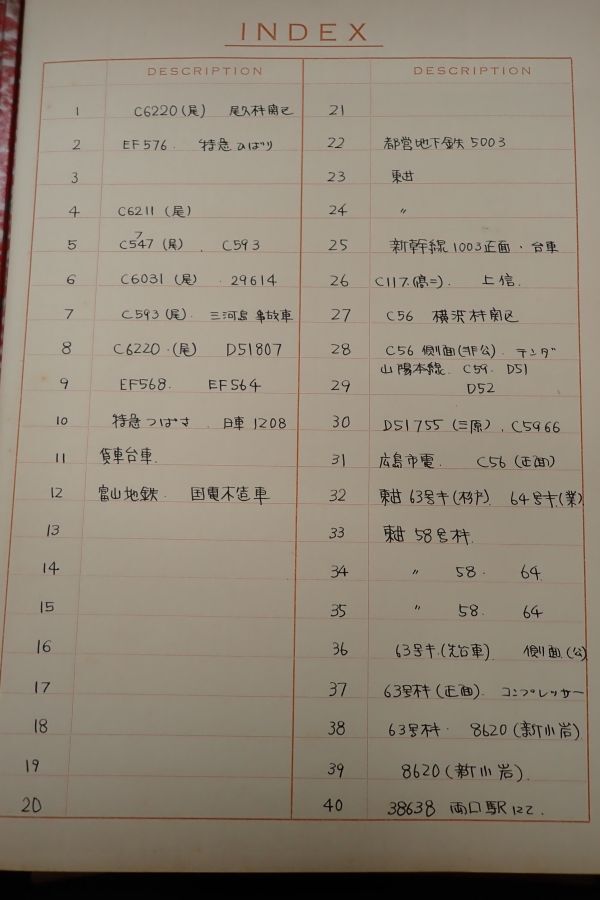 INDEX
DESCRIPTION
1 C6220(尾) 尾久村南に
2 EF576. 特急ひばり
3
4 C6211(尾)
5 C547(尾). C593
7
6 C6031(尾) . 29614
7 C593(尾). 三河島事故車
8 C6220.(尾) D51807
9 EF568. EF564
10 特急つばさ . 日車1208
11 貨車台車.
12 富山地鉄. 国電木造車
13
14
15
16
17
18
19
20
DESCRIPTION
21
22 都営地下鉄5003
23 東
24 〃
25 新幹線1003正面・台車
26 C117.(高二). 上信.
27 C56 横浜
28 C56側面(非公). テンダ
29 山陽本線. C59. D51
D52
30 D51755(三原). C5966
31 広島市電. C56(正面)
32 63号 64号(業)
33 58号
34 〃 58. 64
35 〃 58. 64
36 63号(先台車) 側面.(公)
37 63号(正面). コンプレッサー
38 63号. 8620(新小岩)
39 8620(新小岩).
40 38638 両口駅にて.